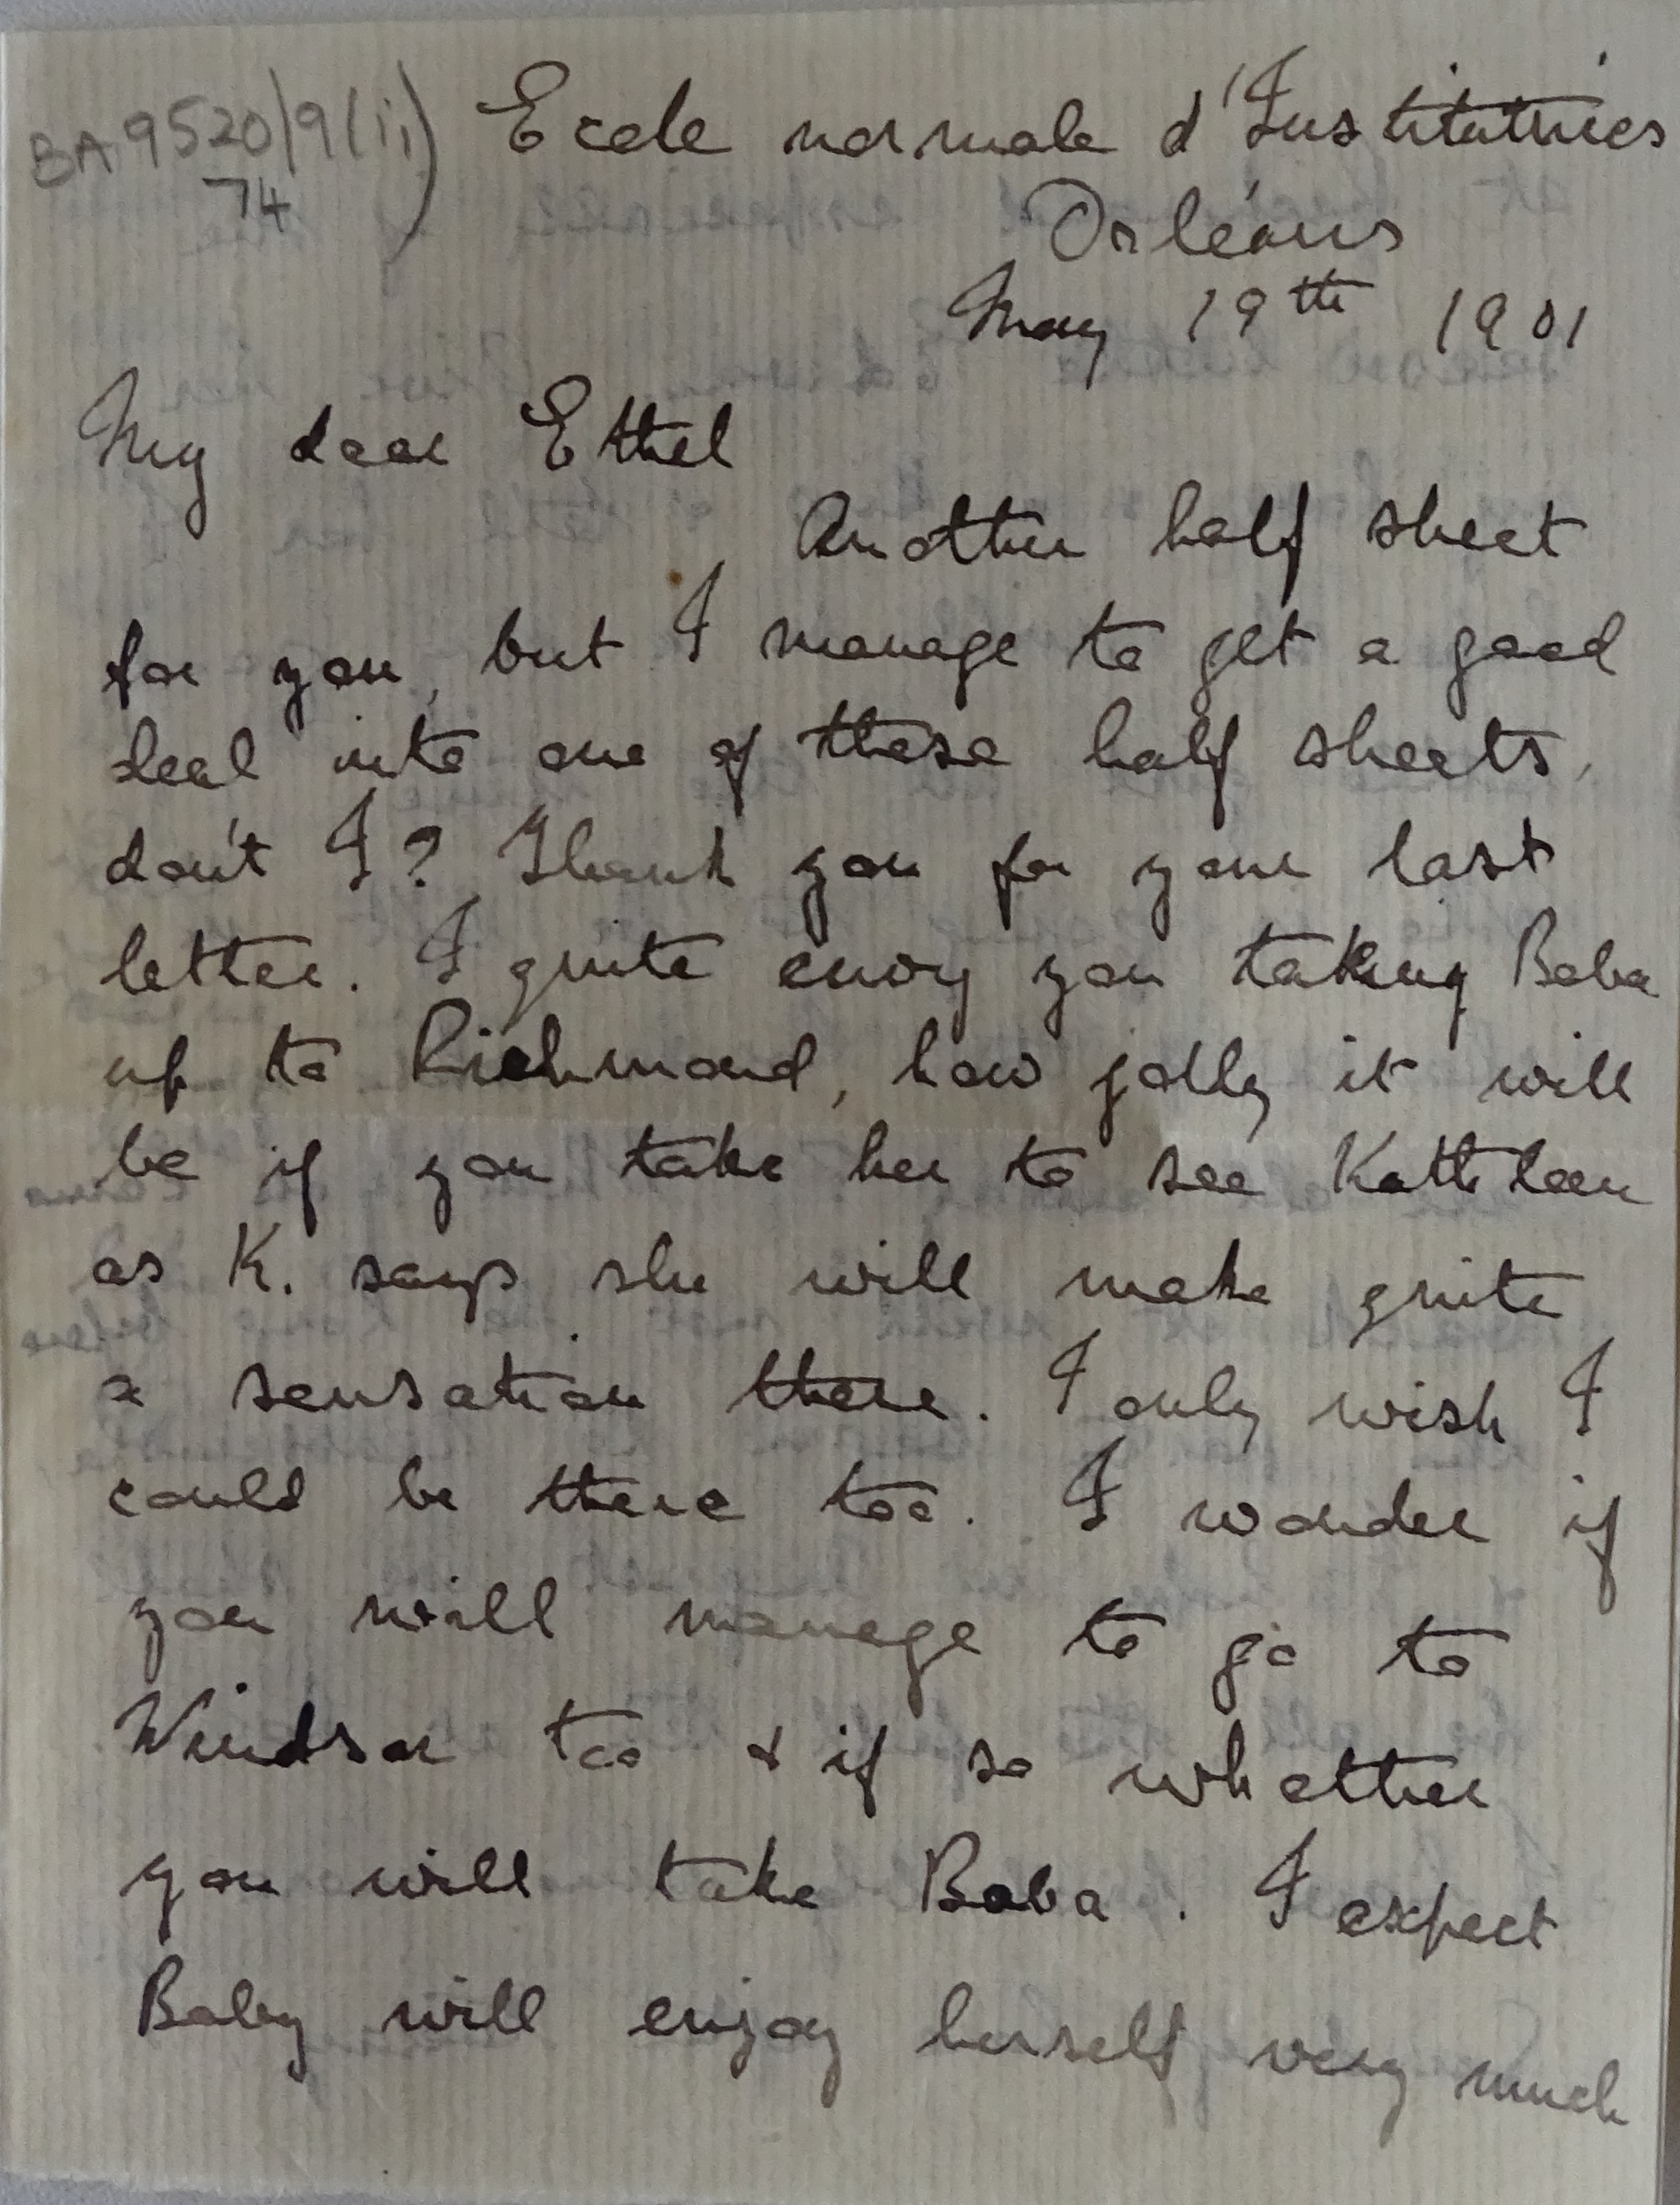 BA 9520/9(ii)
74
Ecole normale d'Institutrices
Orléans
May 19th 1901
My dear Ethel
Another half sheet
for you, but I manage to get a good
deal into one of these half sheets,
don't I? Thank you for your last
letter. I quite envy you taking Baba
up to Richmond, how jolly it will
be if you take her to see Kathleen
as K. says she will make quite
a sensation there. I only wish I
could be there too. I wonder if
you will manage to go to
Windsor too & if so whether
you will take Baba. I expect
Baby will enjoy herself very much